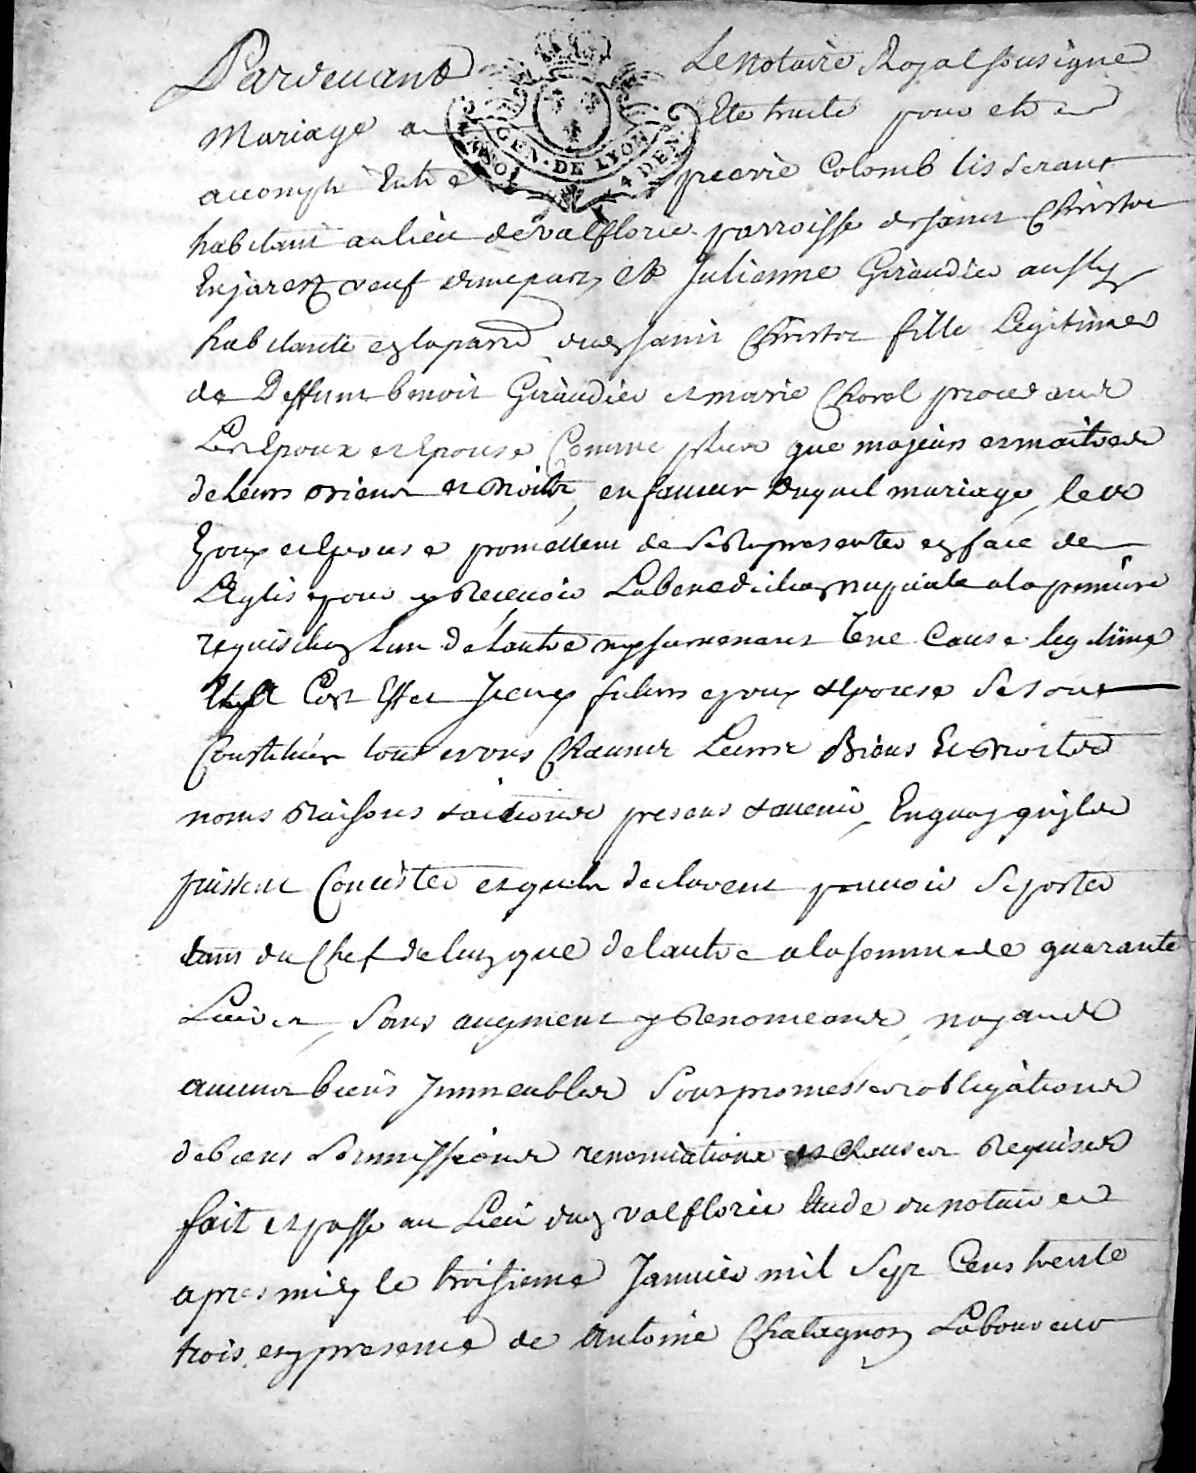 Pardevant Le Notaire Royal sousigne
GEN. DE LYON
4 DEN.
Mariage a Ete traite pour etre
accomply Entre pierre Colomb tisserant
habitant au lieu de valflorie parroisse de saint Christoe
En jarest veuf dune part, et Julienne Giraudier aussy
habitante en la parre dud saint Christoe fille Legitime
de Deffunt benoit Giraudier et marie Chorel procedant
Les Epoux et Epouse Comme que majeurs et maitres
de Leurs et Droits, en faveur Duquel mariage, les
Epoux et Epouse promettent de se Representer en face de
LEglise pour y Recevoir La benediction nuptiale a la premiere
requisition Lun de Lautre ny survenant Cause legitime
Et a Cet Effet Iceux futurs epoux et Epouse se sont
Constitués tous Chacuns Leurs Biens Et Droits
noms Raisons et actions presens et avenir, En quoy quils
puissent Concister et quils declarent pouvoir se porter
tant du Chef de luy que de lautre a la somme de quarante
Livres, sans augment y Renonceant, nayant
aucuns biens Immeubles Sous promesses obligations
de biens Soumissions renonciations et clauses Requises
fait et passé au Lieu dud valflorie Etude du notaire
apres midy le troisieme Janvier mil sept Cens trente
trois, en presence de Antoine Chatagnon Laboureur